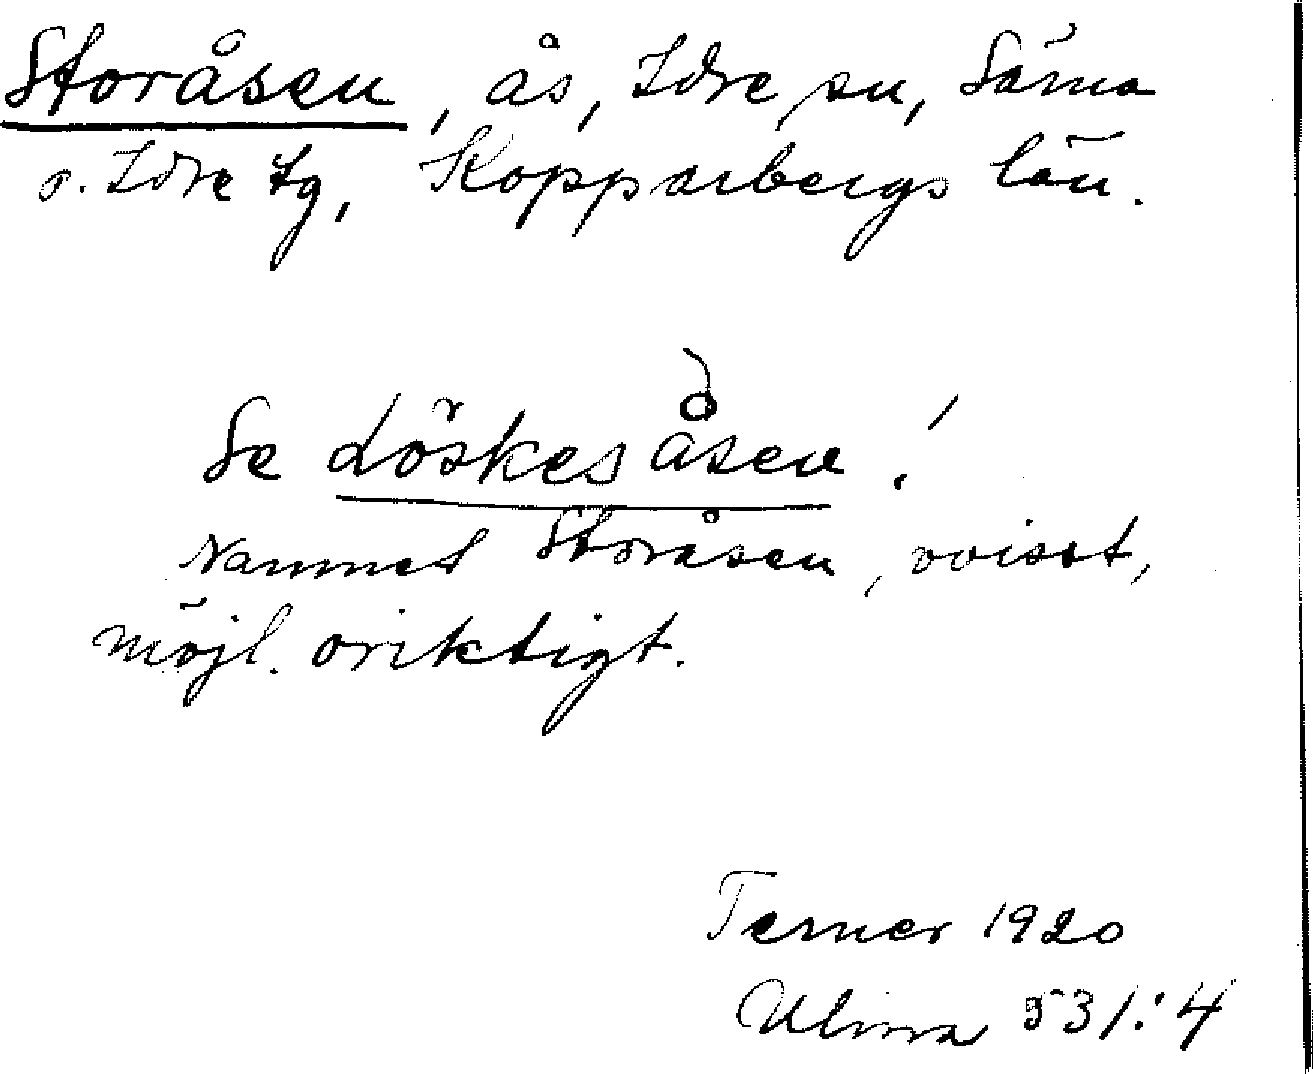 Storåsen, ås, Idre sn, Särna
o. Idre tg, Kopparbergs län.
Se Löskesåsen!
Namnet Storåsen, ovisst,
möjl. oriktigt.
Terner 1920
Ulma 531:4